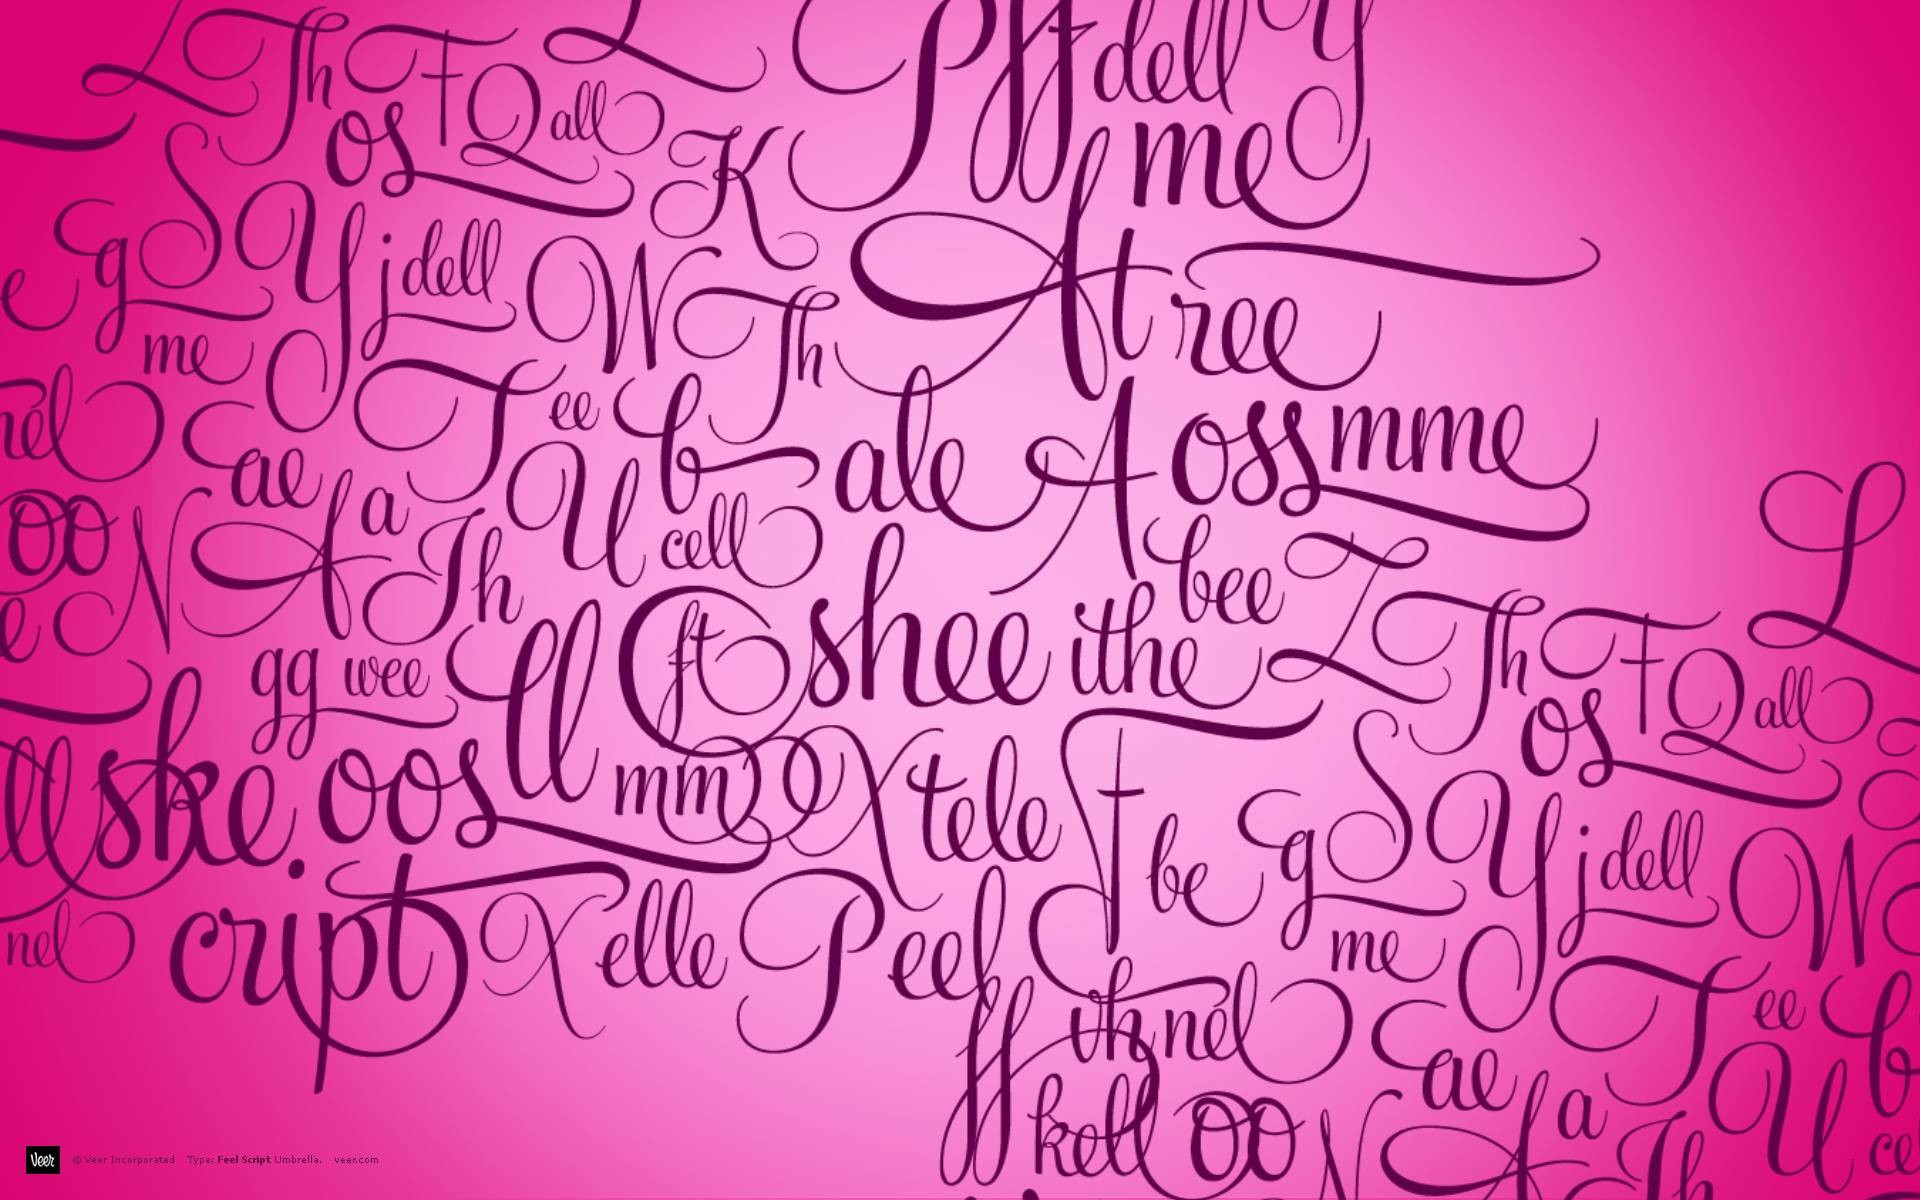 L Th F Q all L Pff dell Y
os K me
g S Y j dell W Th At ree
e me
nel E ae T ee b ale A oss mme L
oo N A a Th U cell bee Z Th F Q all
e gg wee ll ft shee ithe os
ll ske oos mm X tele F be g S Y j dell W
cript X elle P eel me
nel ff th nel E ae T ee b
kell oo N A a Th U ce
Veer © Veer Incorporated Type: Feel Script Umbrella. veer.com